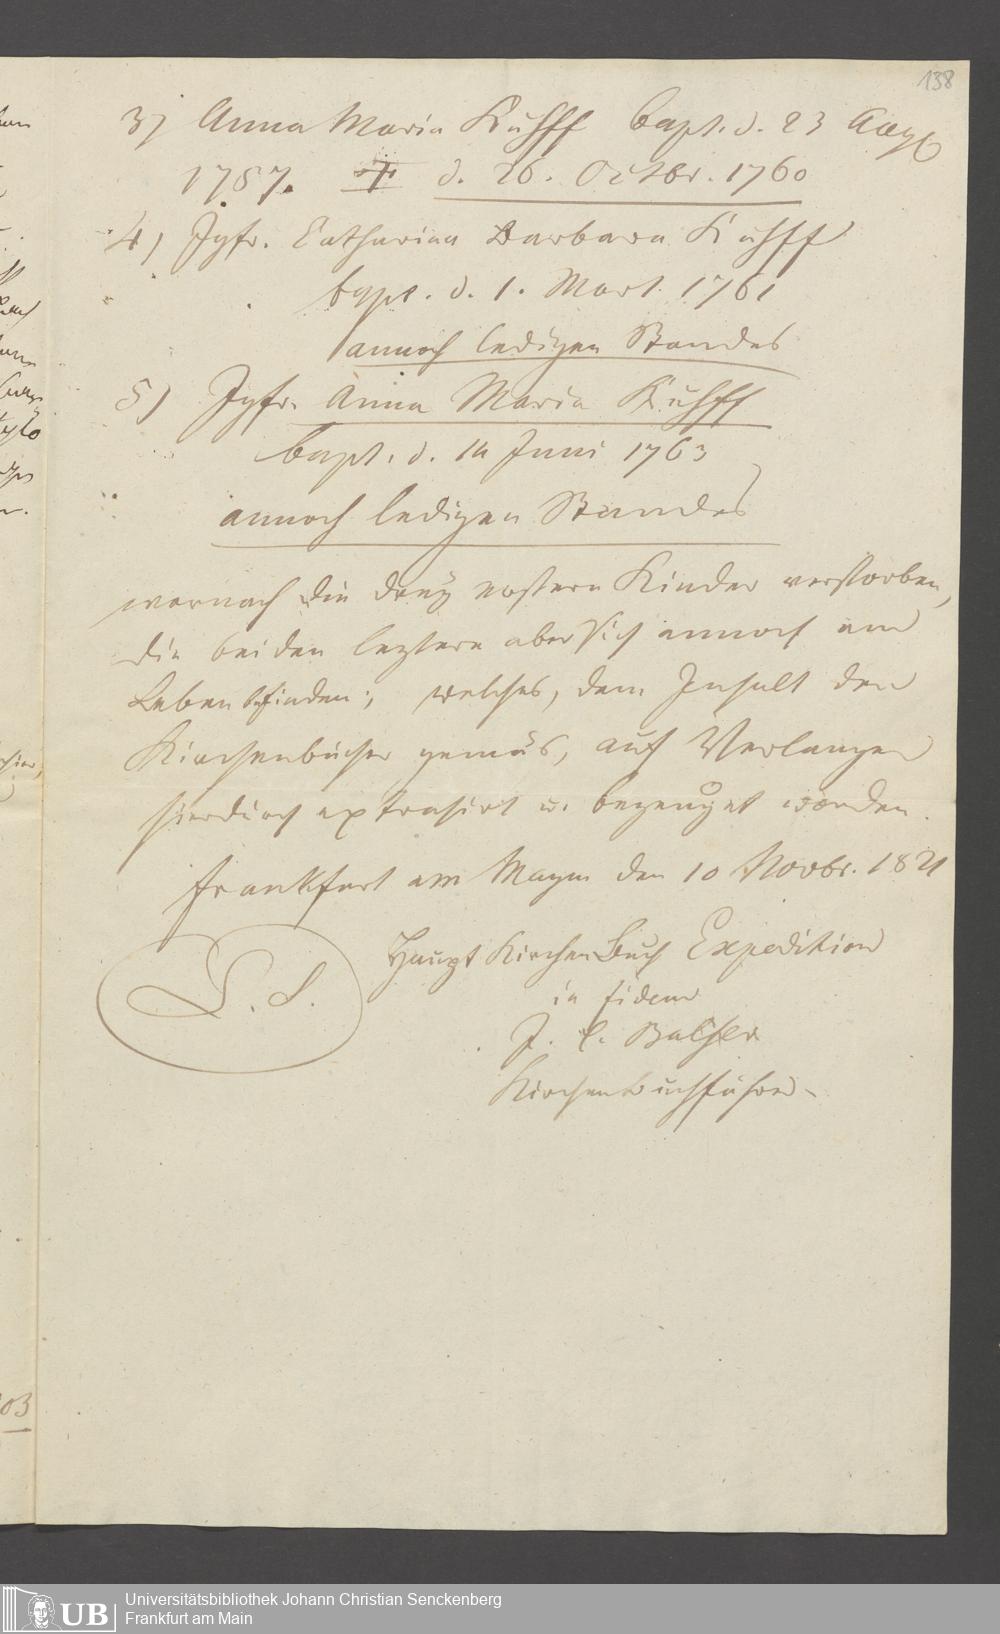 138
3) Anna Maria Kuhff bapt. d. 23 Aug
1757. † d. 26. Octbr. 1760
4) Jgfr. Catharina Barbara Kuhff
bapt. d. 1. Mart. 1761
annoch ledigen Standes
5) Jgfr. Anna Maria Kuhff
bapt. d. 14 Juni 1763
annoch ledigen Standes
wornach die drey erstern Kinder verstorben,
die beiden leztere aber sich annoch am
Leben befinden; welches, dem Inhalt der
Kirchenbücher gemäs, auf Verlangen
hierdurch extrahirt u. bezeuget worden.
Frankfurt am Mayn den 10 Novbr. 1821
Haupt Kirchen Buch Expedition
L. S.
in fidem
J. C.
Kirchenbuchführer
03
UB
Universitätsbibliothek Johann Christian Senckenberg
Frankfurt am Main